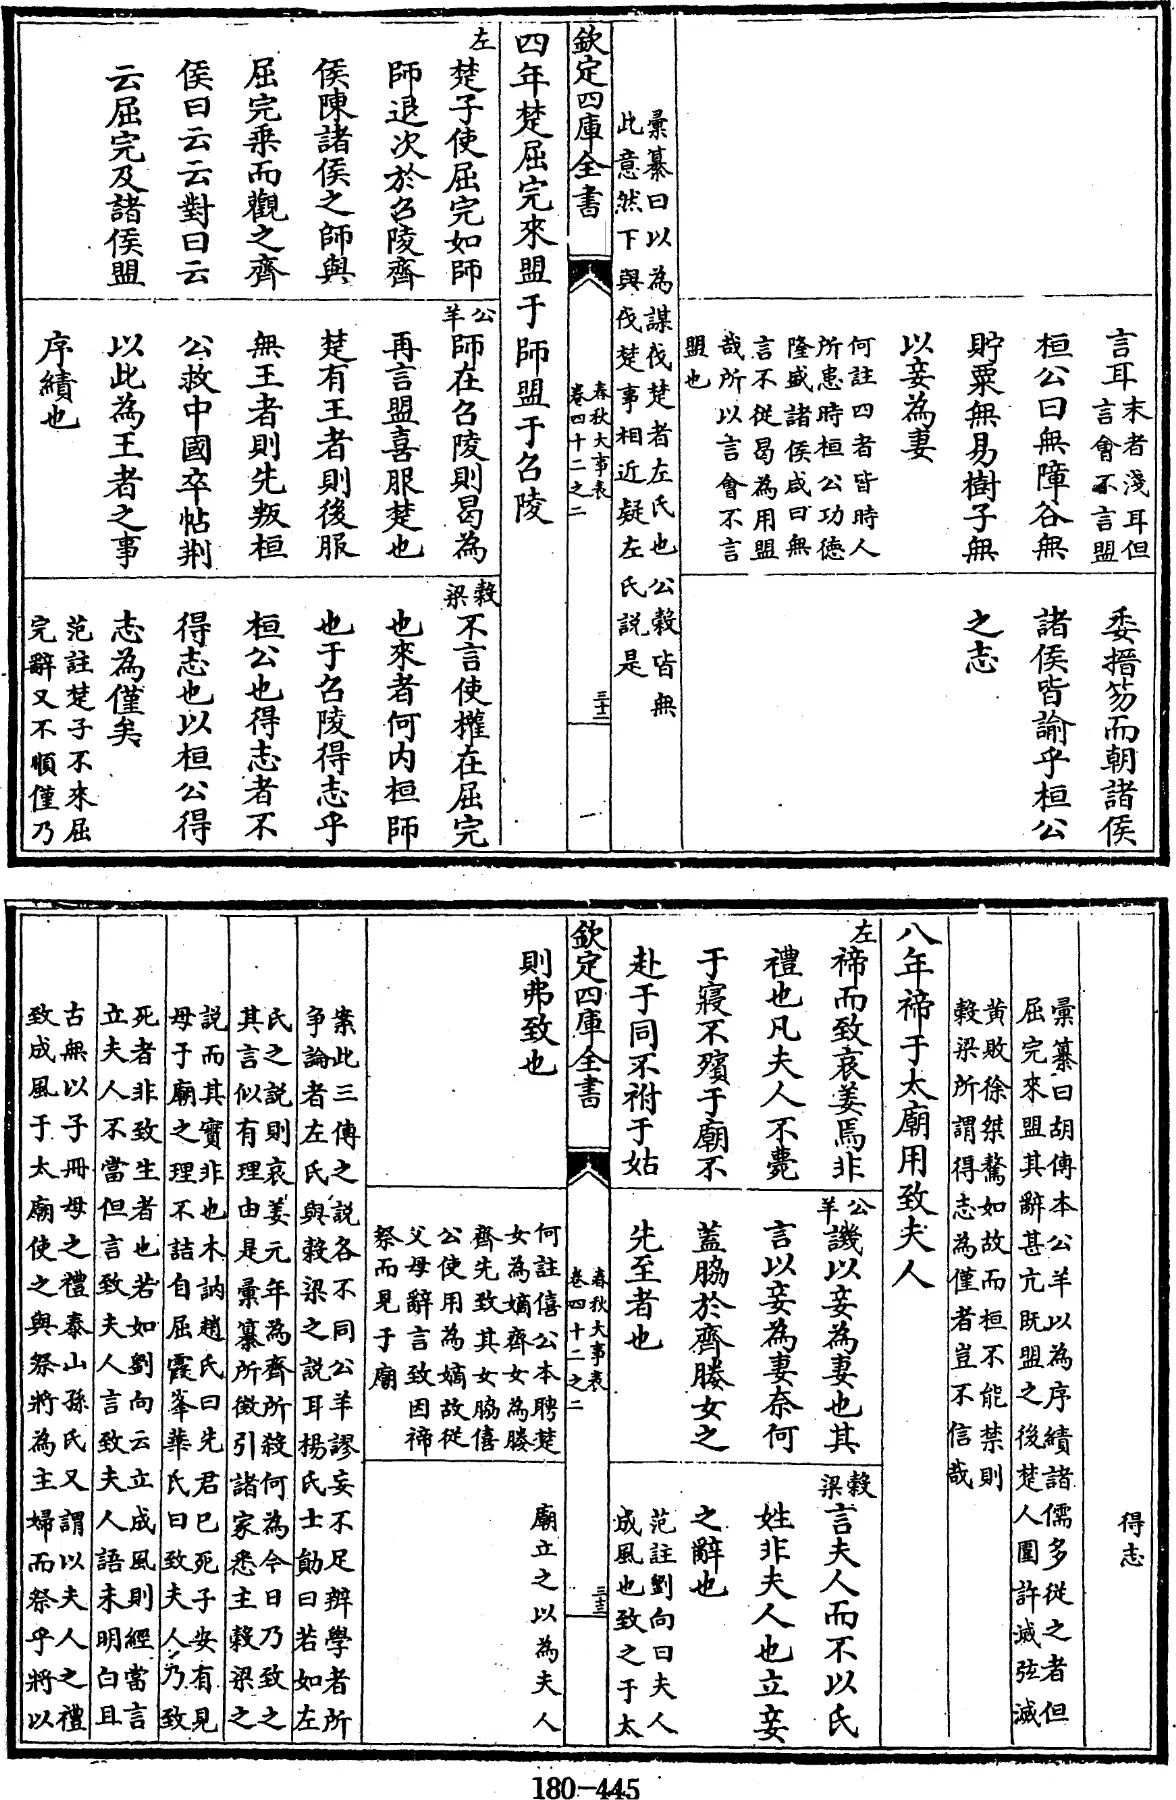 言耳末者淺耳但
言會不言盟
桓公曰無障谷無
貯粟無易樹子無
以妾為妻
何註四者皆時人
所患時桓公功德
隆盛諸侯咸曰無
言不從曷為用盟
哉所以言會不言
盟也
委搢笏而朝諸侯
諸侯皆諭乎桓公
之志
彙纂曰以為謀伐楚者左氏也公穀皆無
此意然下與伐楚事相近疑左氏説是
欽定四庫全書
春秋大事表
卷四十二之二
三十二
四年楚屈完來盟于師盟于召陵
左
楚子使屈完如師
師退次於召陵齊
侯陳諸侯之師與
屈完乘而觀之齊
侯曰云云對曰云
云屈完及諸侯盟
公羊
師在召陵則曷為
再言盟喜服楚也
楚有王者則後服
無王者則先叛桓
公救中國卒帖荆
以此為王者之事
序績也
穀梁
不言使權在屈完
也來者何内桓師
也于召陵得志乎
桓公也得志者不
得志也以桓公得
志為僅矣
范註楚子不來屈
完辭又不順僅乃
得志
彙纂曰胡傳本公羊以為序績諸儒多從之者但
屈完來盟其辭甚亢既盟之後楚人圍許滅弦滅
黄敗徐桀驁如故而桓不能禁則
穀梁所謂得志為僅者豈不信哉
八年禘于太廟用致夫人
左
禘而致哀姜焉非
禮也凡夫人不薨
于寢不殯于廟不
赴于同不祔于姑
則弗致也
公羊
譏以妾為妻也其
言以妾為妻奈何
蓋脅於齊媵女之
先至者也
何註僖公本聘楚
女為嫡齊女為媵
齊先致其女脅僖
公使用為嫡故從
父母辭言致因禘
祭而見于廟
穀梁
言夫人而不以氏
姓非夫人也立妾
之辭也
范註劉向曰夫人
成風也致之于太
廟立之以為夫人
欽定四庫全書
春秋大事表
卷四十二之二
三十三
案此三傳之説各不同公羊謬妄不足辨學者所
爭論者左氏與穀梁之説耳楊氏士勛曰若如左
氏之説則哀姜元年為齊所殺何為今日乃致之
其言似有理由是彙纂所徵引諸家悉主穀梁之
説而其實非也木訥趙氏曰先君已死子安有見
母于廟之理不詰自屈霞峯華氏曰致夫人乃致
死者非致生者也若如劉向云立成風則經當言
立夫人不當但言致夫人言致夫人語未明白且
古無以子冊母之禮泰山孫氏又謂以夫人之禮
致成風于太廟使之與祭將為主婦而祭乎將以
180-445